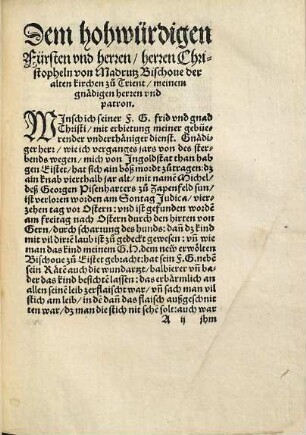 Dem hohwürdigen
Fürsten vnd herren/ herren Chri-
stopheln von Madrutz Bischoue der
alten kirchen zů Trient/ meinem
gnädigen herren vnd
patron.
WJnsch ich seiner F. G. frid vnd gnad
Christi/ mit erbietung meiner gebüe-
render vnderthäniger dienst. Gnädi-
ger herr/ wie ich vergangs jars von des ster-
bends wegen/ mich von Jngoldstat than hab
gen Eistet/ hat sich ain böß mordt zůtragen: dz
ain knab vierthalb jar alt/ mit namē Michel/
deß Georgen Pisenharters zů Zapenfeld sun/
ist verloren worden am Sontag Judica/ vier-
zehen tag vor Ostern: vnd ist gefunden wordē
am freitag nach Ostern durch den hirten von
Gern/ durch scharrung des hunds: dañ dz kind
mit vil dürrē laub ist zů gedeckt gewesen: vñ wie
man das kind meinen G. H. dem new erwölten
Bischoue zů Eistet gebracht: hat sein F. G. nebē
sein Räte auch die wundärzt/ balbierer vñ ba-
der das kind besichtē lassen: das erbärmlich an
allen seinē leib zerflaischt war/ vñ sach man vil
stich am leib/ in dē dañ das flaisch außgeschnit
ten war/ dz man die stich nit sehē solt: auch war
A ij jhm